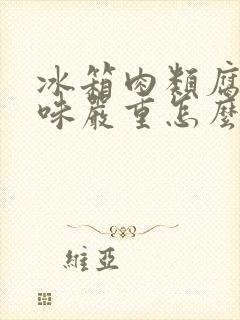 冰箱肉類腐
味嚴重怎麼
維亞